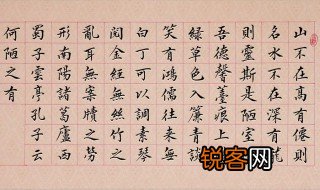 山不在高有僊則
名水不在深有龍
則靈斯是陋室惟
吾德馨苔痕上階
綠草色入簾青談
笑有鴻儒往來無
白丁可以調素琴
閱金經無絲竹之
亂耳無案牘之勞
形南陽諸葛廬西
蜀子雲亭孔子云
何陋之有
锐客网